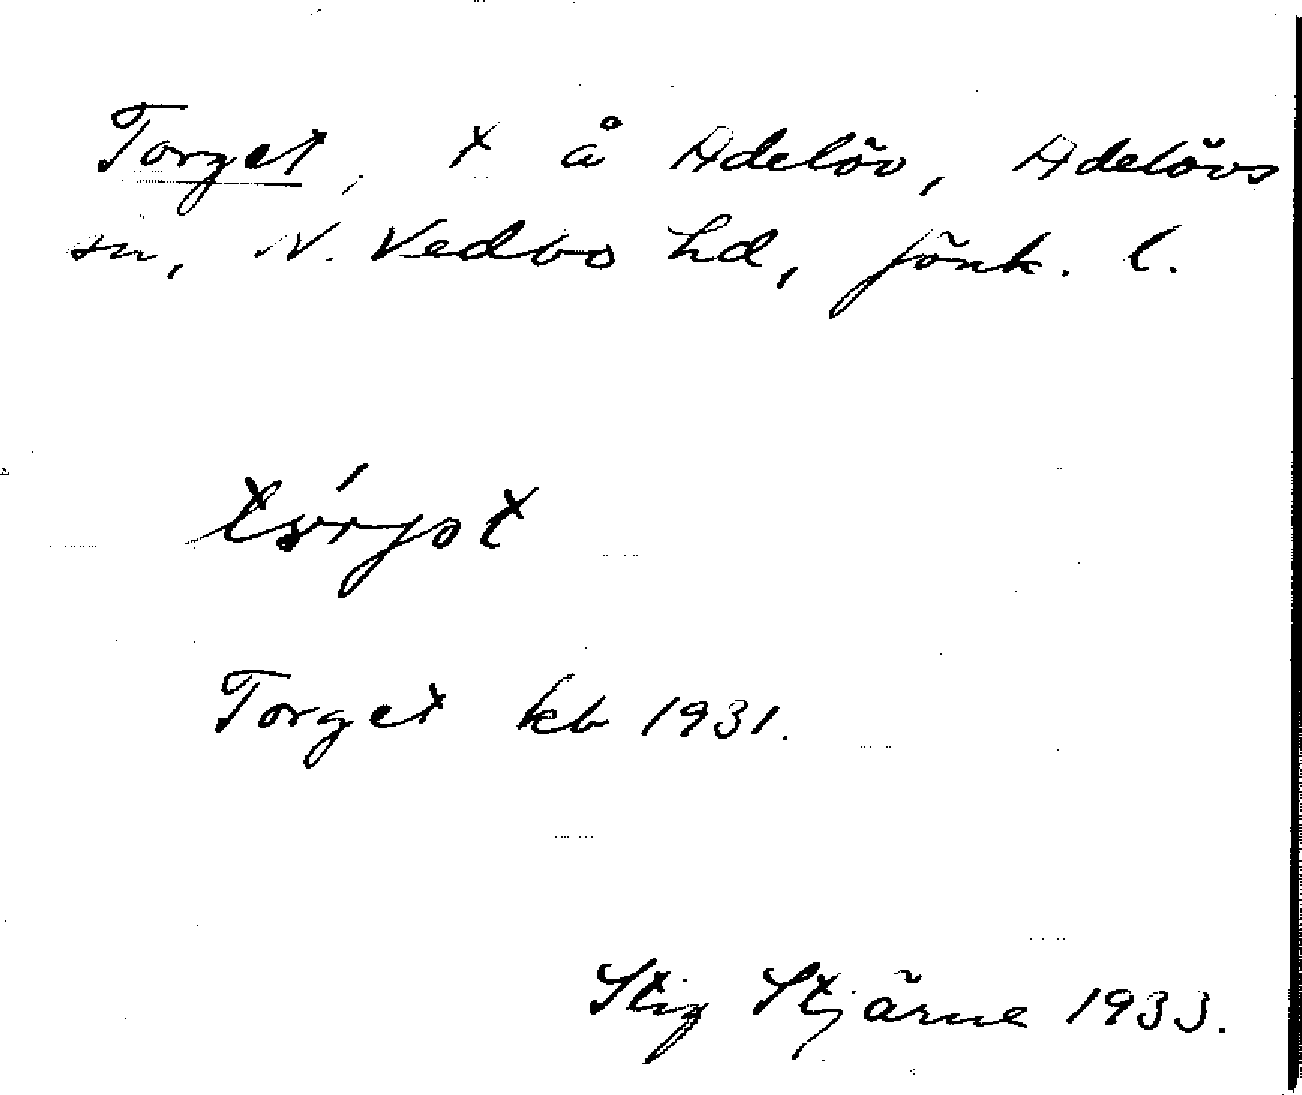 Torget, t å Adelöv, Adelövs
sn, N. Vedbo hd, Jönk. l.
Torget kb 1931.
Stig Stjärne 1933.